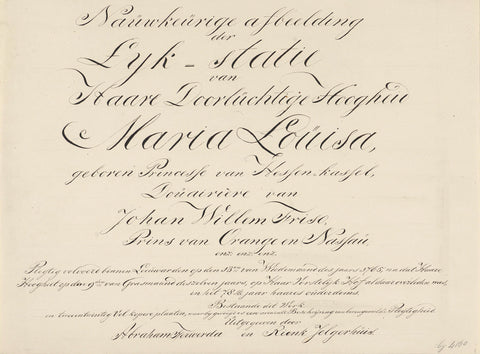 Naüwkeürige afbeelding
der
Lyk-statie
van
Haare Doorlüchtige Hoogheid
Maria Loüisa,
geboren Princesse van Hessen-kassel,
Doüairière van
Johan Willem Friso,
Prins van Orange en Nassaü,
enz. enz. enz.
Plegtig volvoert binnen Leeuwarden op den 13den van Wiedemaand des jaars 1765, na dat Haare
Hoogheid op den 9den van Grasmaand deszelven jaars, op Haar Vorstelyk Hof aldaar overleden was,
in het 78ste jaar haares ouderdoms.
Bestaande dit Werk
in Vel kopere plaaten, Plegtigheid
Uitgegeven door
Abraham Ferwerda en Rienk Jelgerhuis.